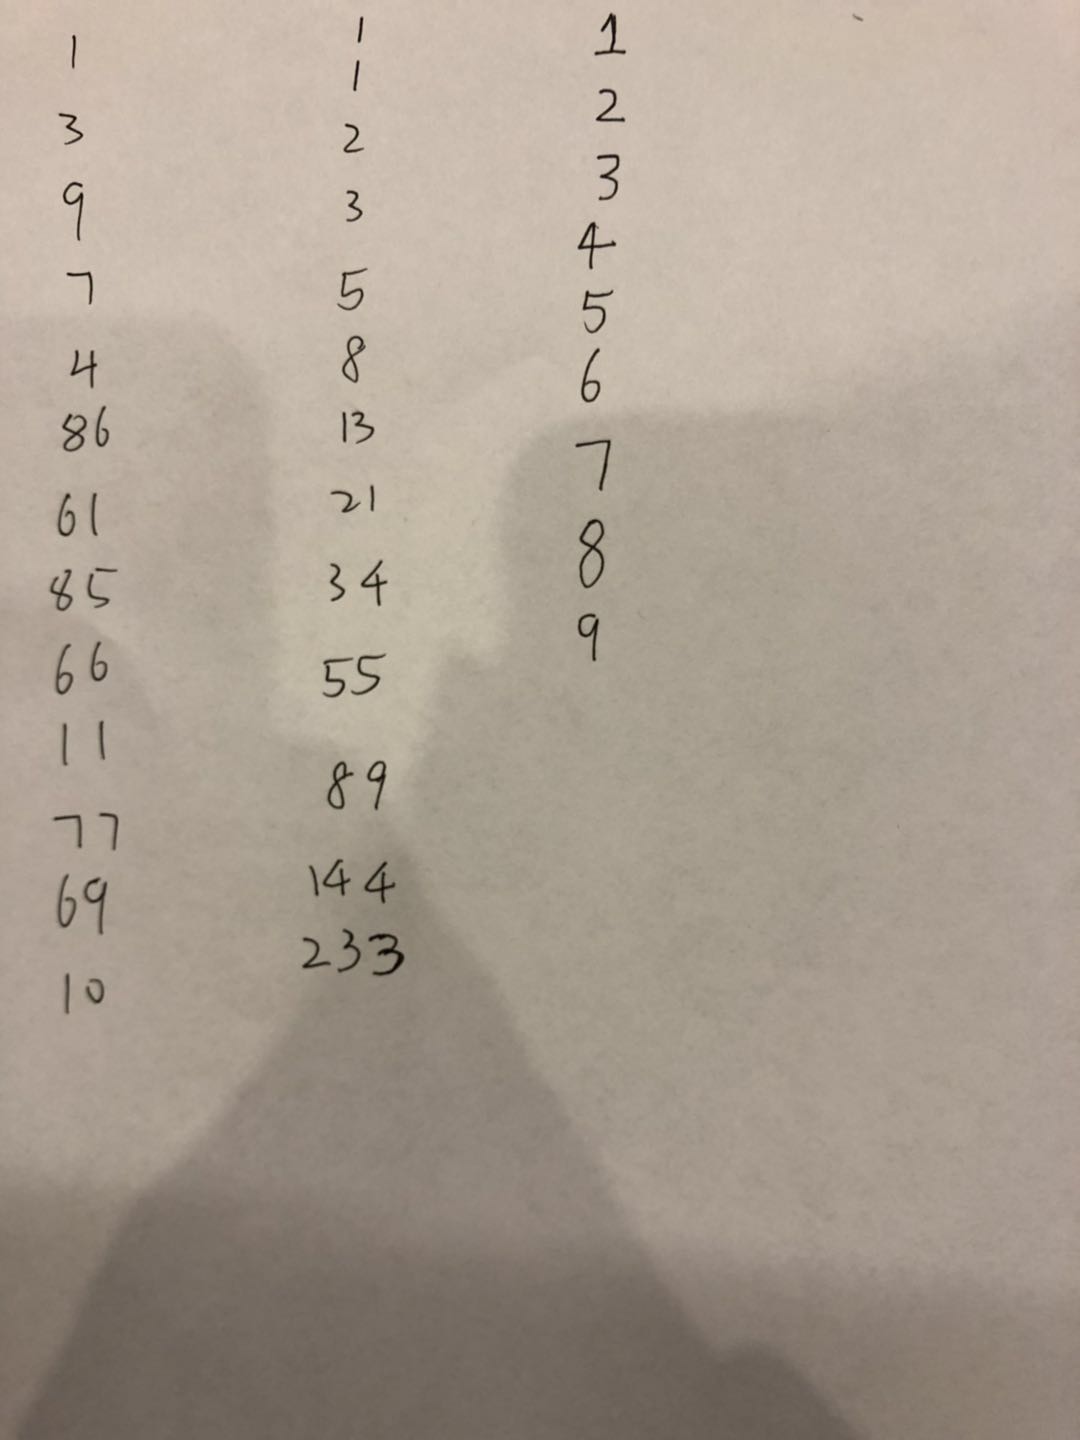 1
3
9
7
4
86
61
85
66
11
77
69
10
1
1
2
3
5
8
13
21
34
55
89
144
233
1
2
3
4
5
6
7
8
9